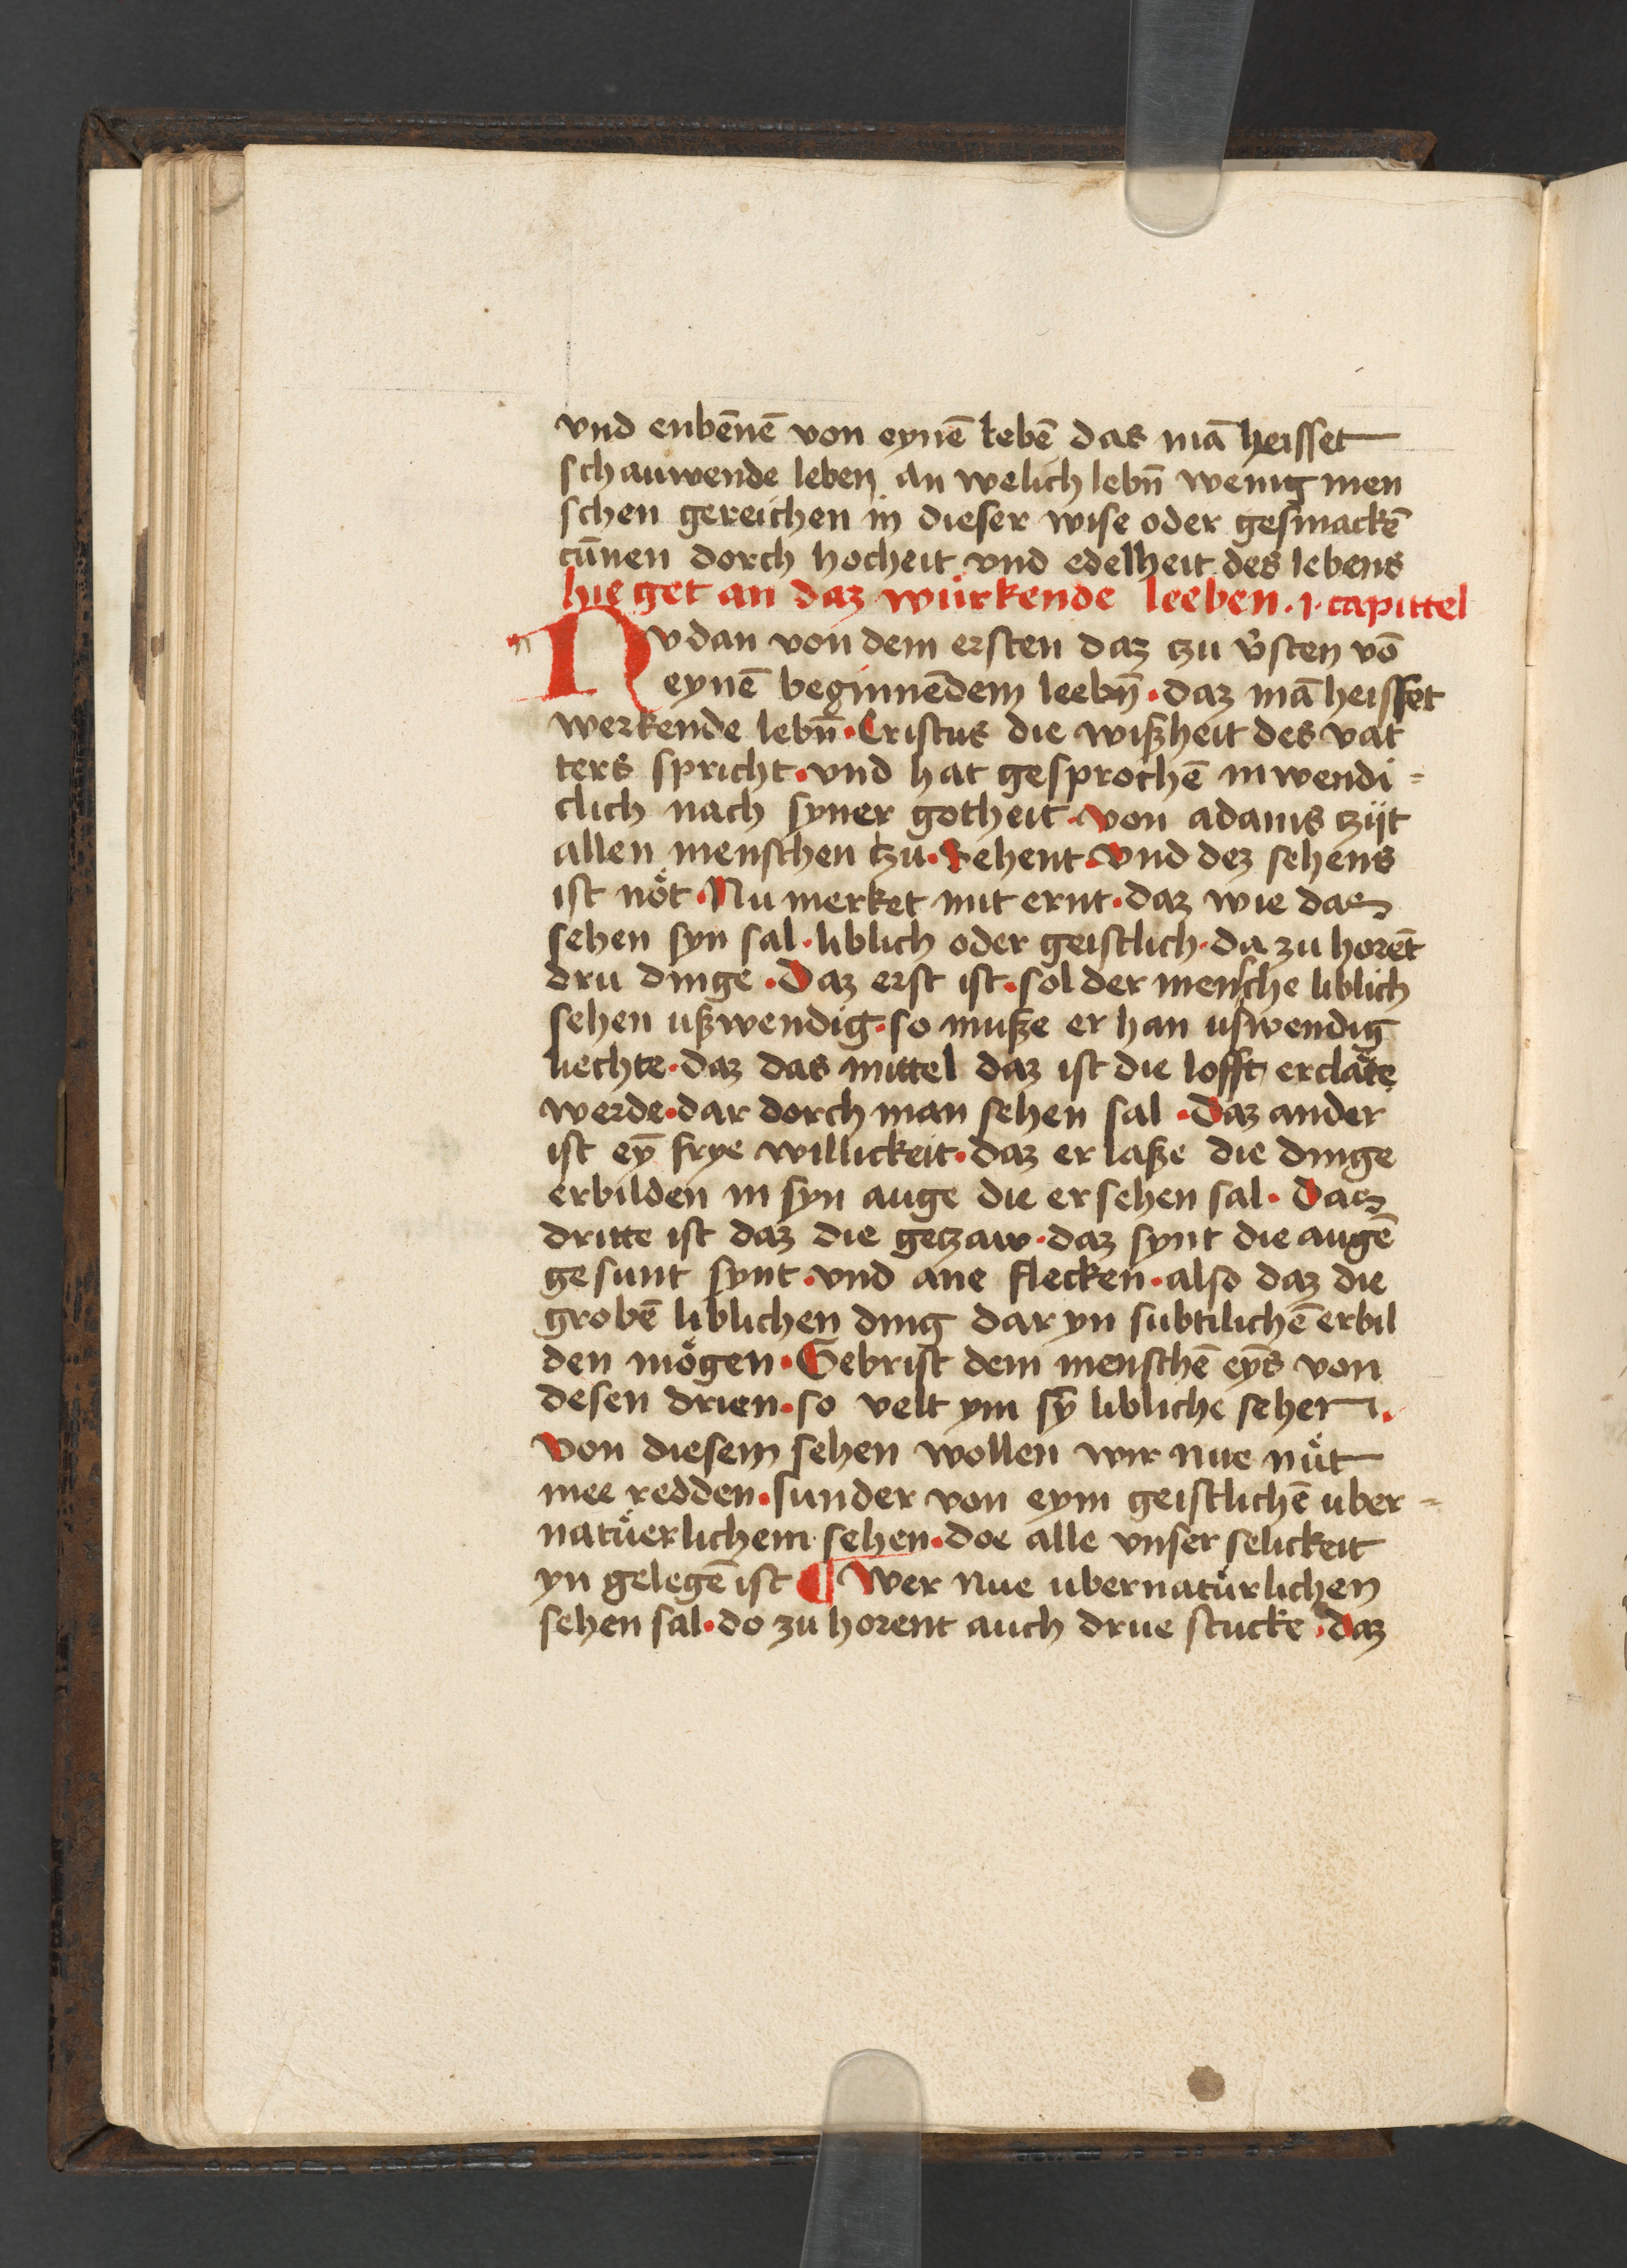 vnd enbēnē von eynē lebē das mā heisset
schauwende leben an welich lebn̄ wenig men
schen gereichen in dieser wise oder gesmackē
cūnen dorch hocheit vnd edelheit des lebens
hie get an daz würkende leeben · j · capittel
Nv dan von dem ersten daz tzu v̓sten vō
eynē beginnēdem leebn̄ · daz mā heisset
werkende lebn̄ · Cristus die wißheit des vat
ters spricht · vnd hat gesprochē inwendi=
clich nach syner gotheit · von adams tzijt
allen menschen tzu · Sehent · vnd dez sehens
ist nöt · Nu merket mit ernt · daz wie daz
sehen syn sal · liblich oder geistlich · da zu horēt
dru dinge · Daz erst ist · sol der mensche liblich
sehen ußwendig · so muße er han uswendig
liechte · daz das mittel daz ist die lofft erclāte
werde · dar dorch man sehen sal · Daz ander
ist eȳ frye willickeit · daz er laße die dinge
erbilden in syn auge die er sehen sal · Daz
dritte ist daz die getzaw · daz synt die augē
gesunt synt · vnd ane flecken · also daz die
grobē liblichen ding dar yn subtilichē erbil
den mögen · Gebrist dem menschē eȳs von
desen drien · so velt ym sȳ libliche sehen ·
von diesem sehen wollen wir nue nüt
mee redden · sunder von eym geistlichē uber=
natüerlichem sehen · doe alle vnser selickeit
yn gelegē ist ¶ Wer nue ubernatürlichen
sehen sal · do zu horent auch drue stucke · daz